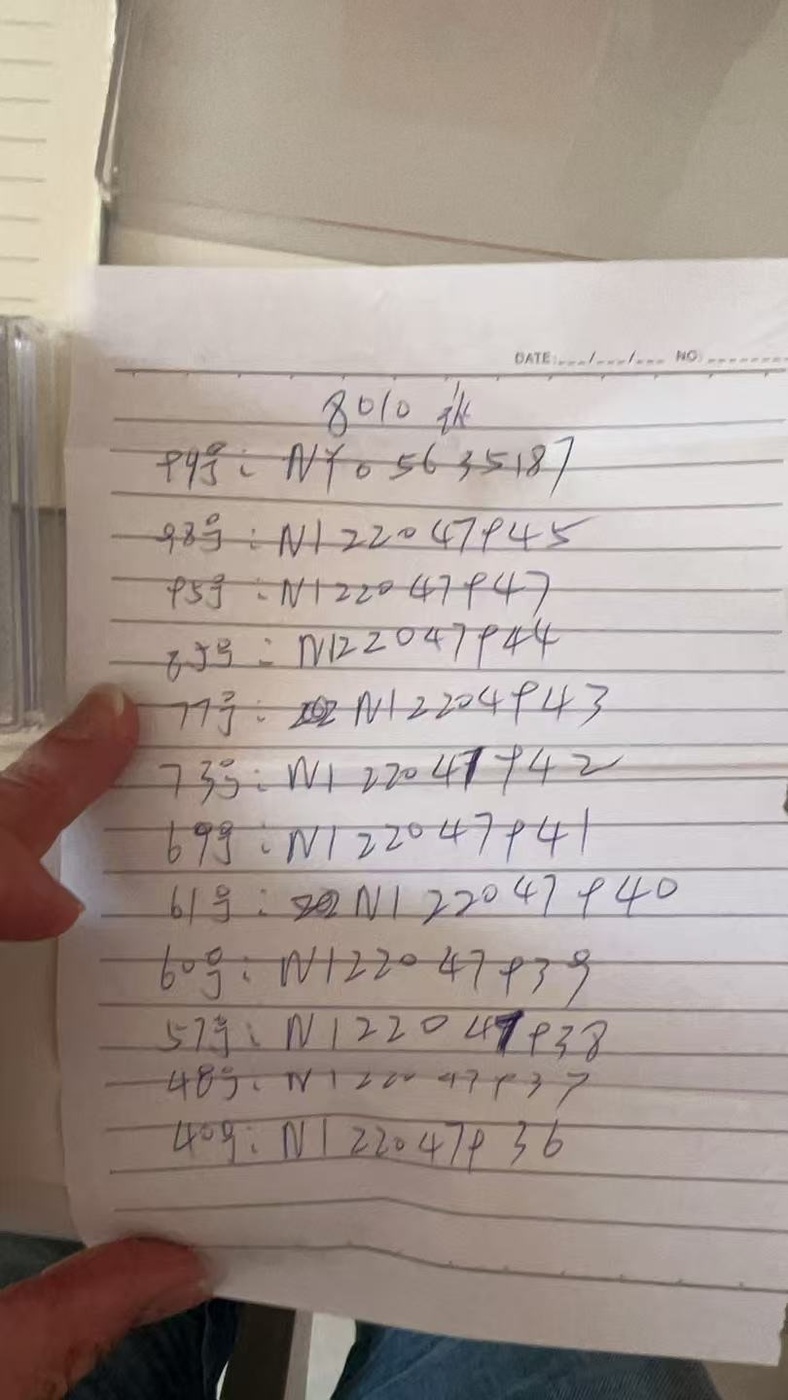 DATE:___/___/___ NO:
8010
99号: NY05635187
98号: N122047945
95号: N122047947
85号: N122047944
77号: N12204943
73号: N122047942
69号: N122047941
61号: N122047940
60号: N122047939
57号: N122047938
48号: N122047937
40号: N122047936